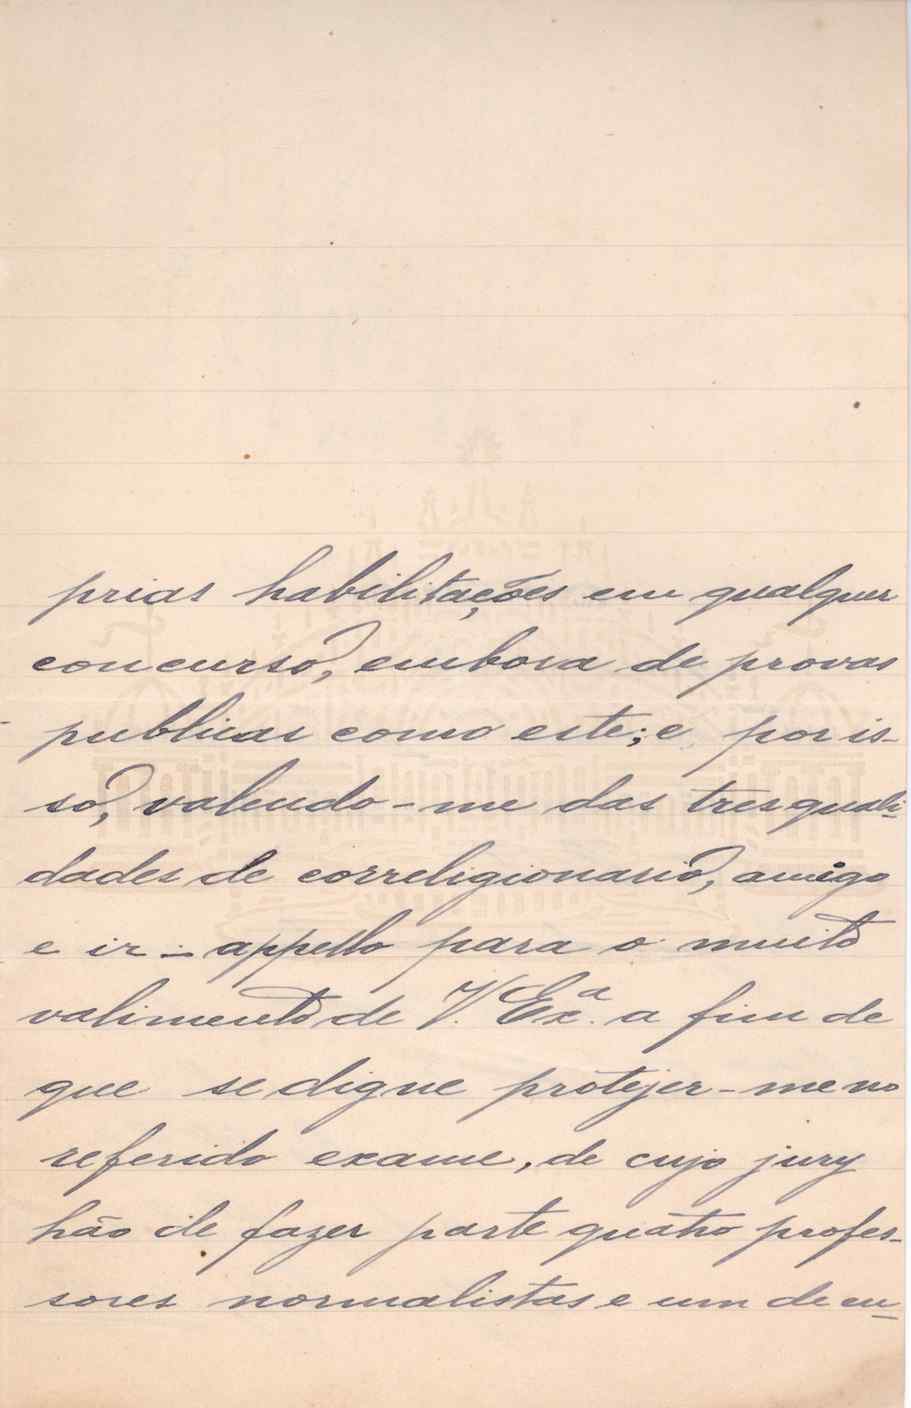 prias habilitações em qualquer
concurso, embora de provas
publicas como este; e por is-
so, valendo-me das tres quali-
dades de correligionario, amigo
e ir∴ appello para o muito
valimento de V. Exª. a fim de
que se digne protejer-me no
referido exame, de cujo jury
hão de fazer parte quatro profes-
sores normalistas e um de en-